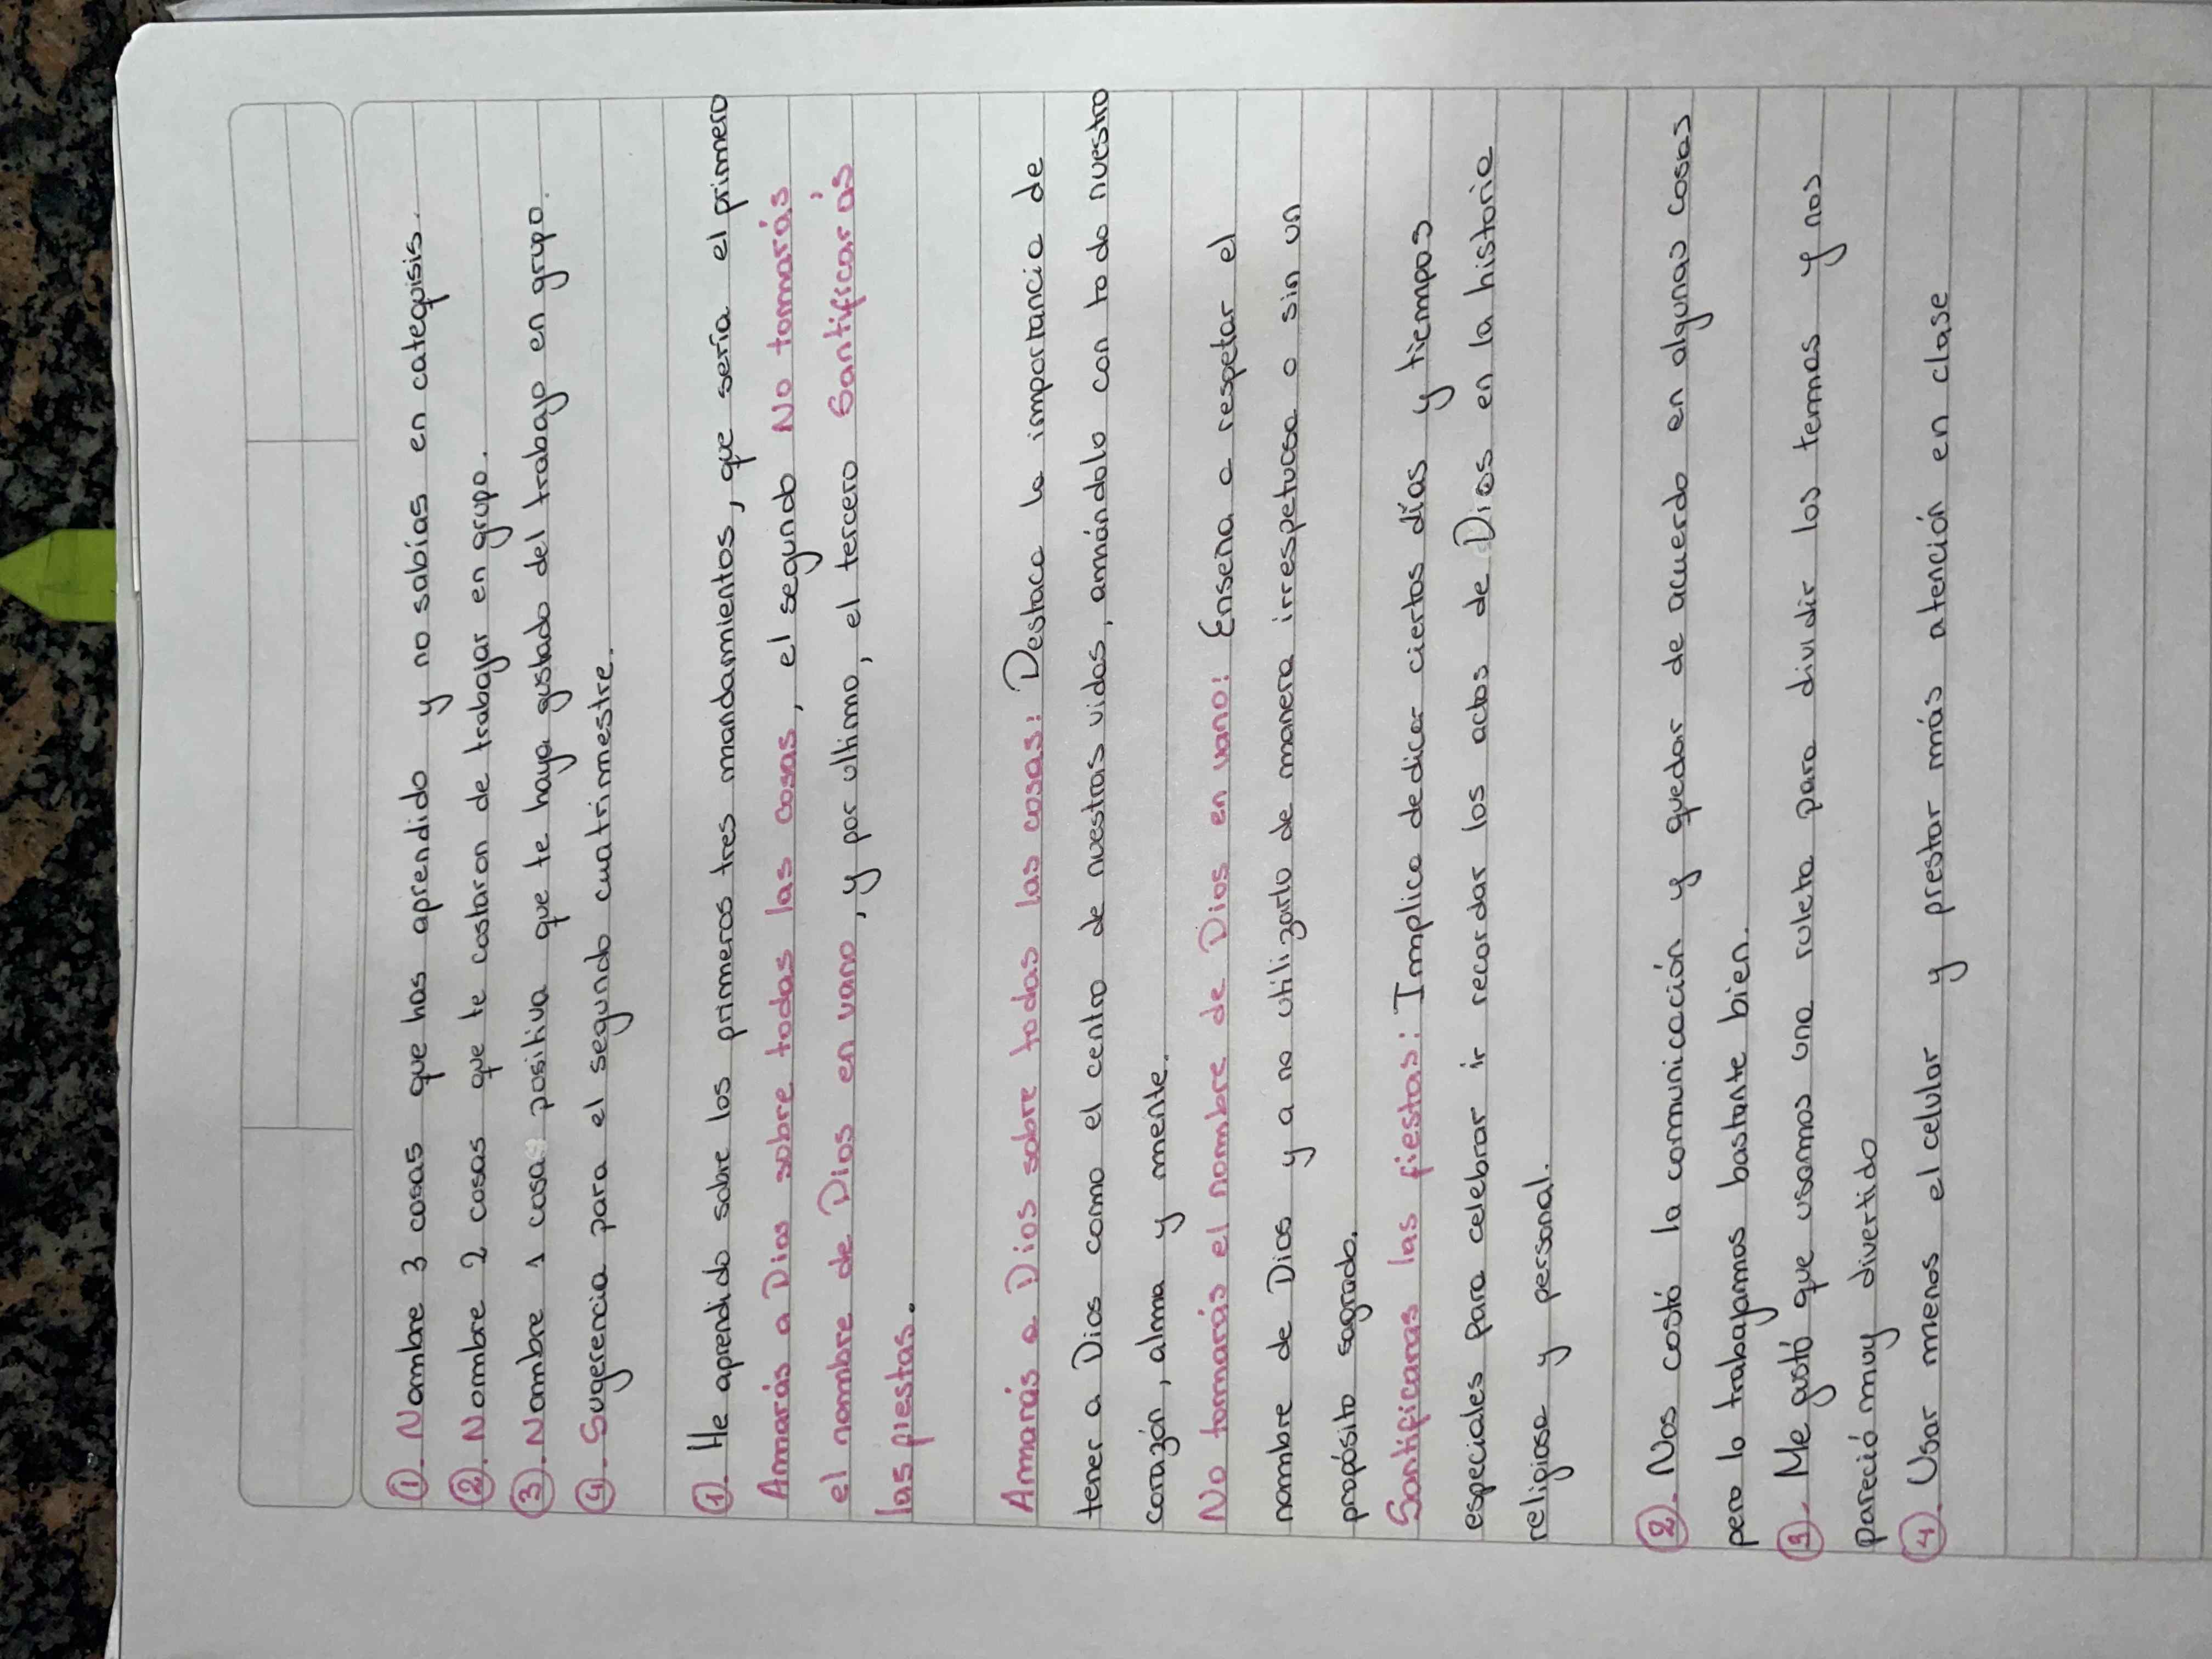 ①. Nombre 3 cosas que has aprendido y no sabías en catequisis.
②. Nombre 2 cosas que te costaron de trabajar en grupo.
③. Nombre 1 cosa positiva que te haya gustado del trabajo en grupo.
④. Sugerencia para el segundo cuatrimestre.
①. He aprendido sobre los primeros tres mandamientos, que sería el primero
Amarás a Dios sobre todas las cosas, el segundo No tomarás
el nombre de Dios en vano, y por ultimo, el tercero Santificarás
las fiestas.
Amarás a Dios sobre todas las cosas: Destaca la importancia de
tener a Dios como el centro de nuestras vidas, amándolo con todo nuestro
corazón, alma y mente.
No tomarás el nombre de Dios en vano: Enseña a respetar el
nombre de Dios y a no utilizarlo de manera irrespetuosa o sin un
propósito sagrado.
Santificaras las fiestas: Implica dedicar ciertos días y tiempos
especiales para celebrar ir recordar los actos de Dios en la historia
religiosa y personal.
②. Nos costó la comunicación y quedar de acuerdo en algunas cosas
pero lo trabajamos bastante bien.
③. Me gustó que usamos una ruleta para dividir los temas y nos
pareció muy divertido
④. Usar menos el celular y prestar más atención en clase